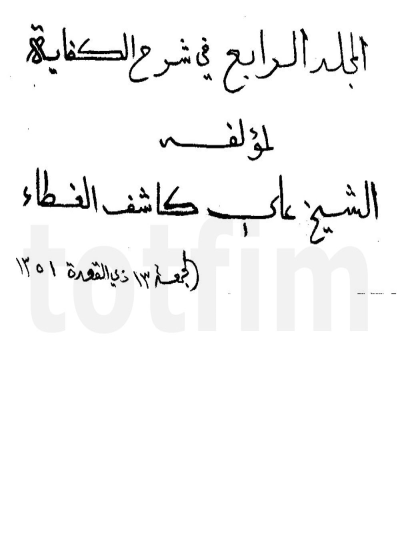 المجلد الرابع في شرح الكفاية
لمؤلفه
الشيخ علي كاشف الغطاء
الجمعة ١٣ ذي القعدة ١٣٥١
totfim